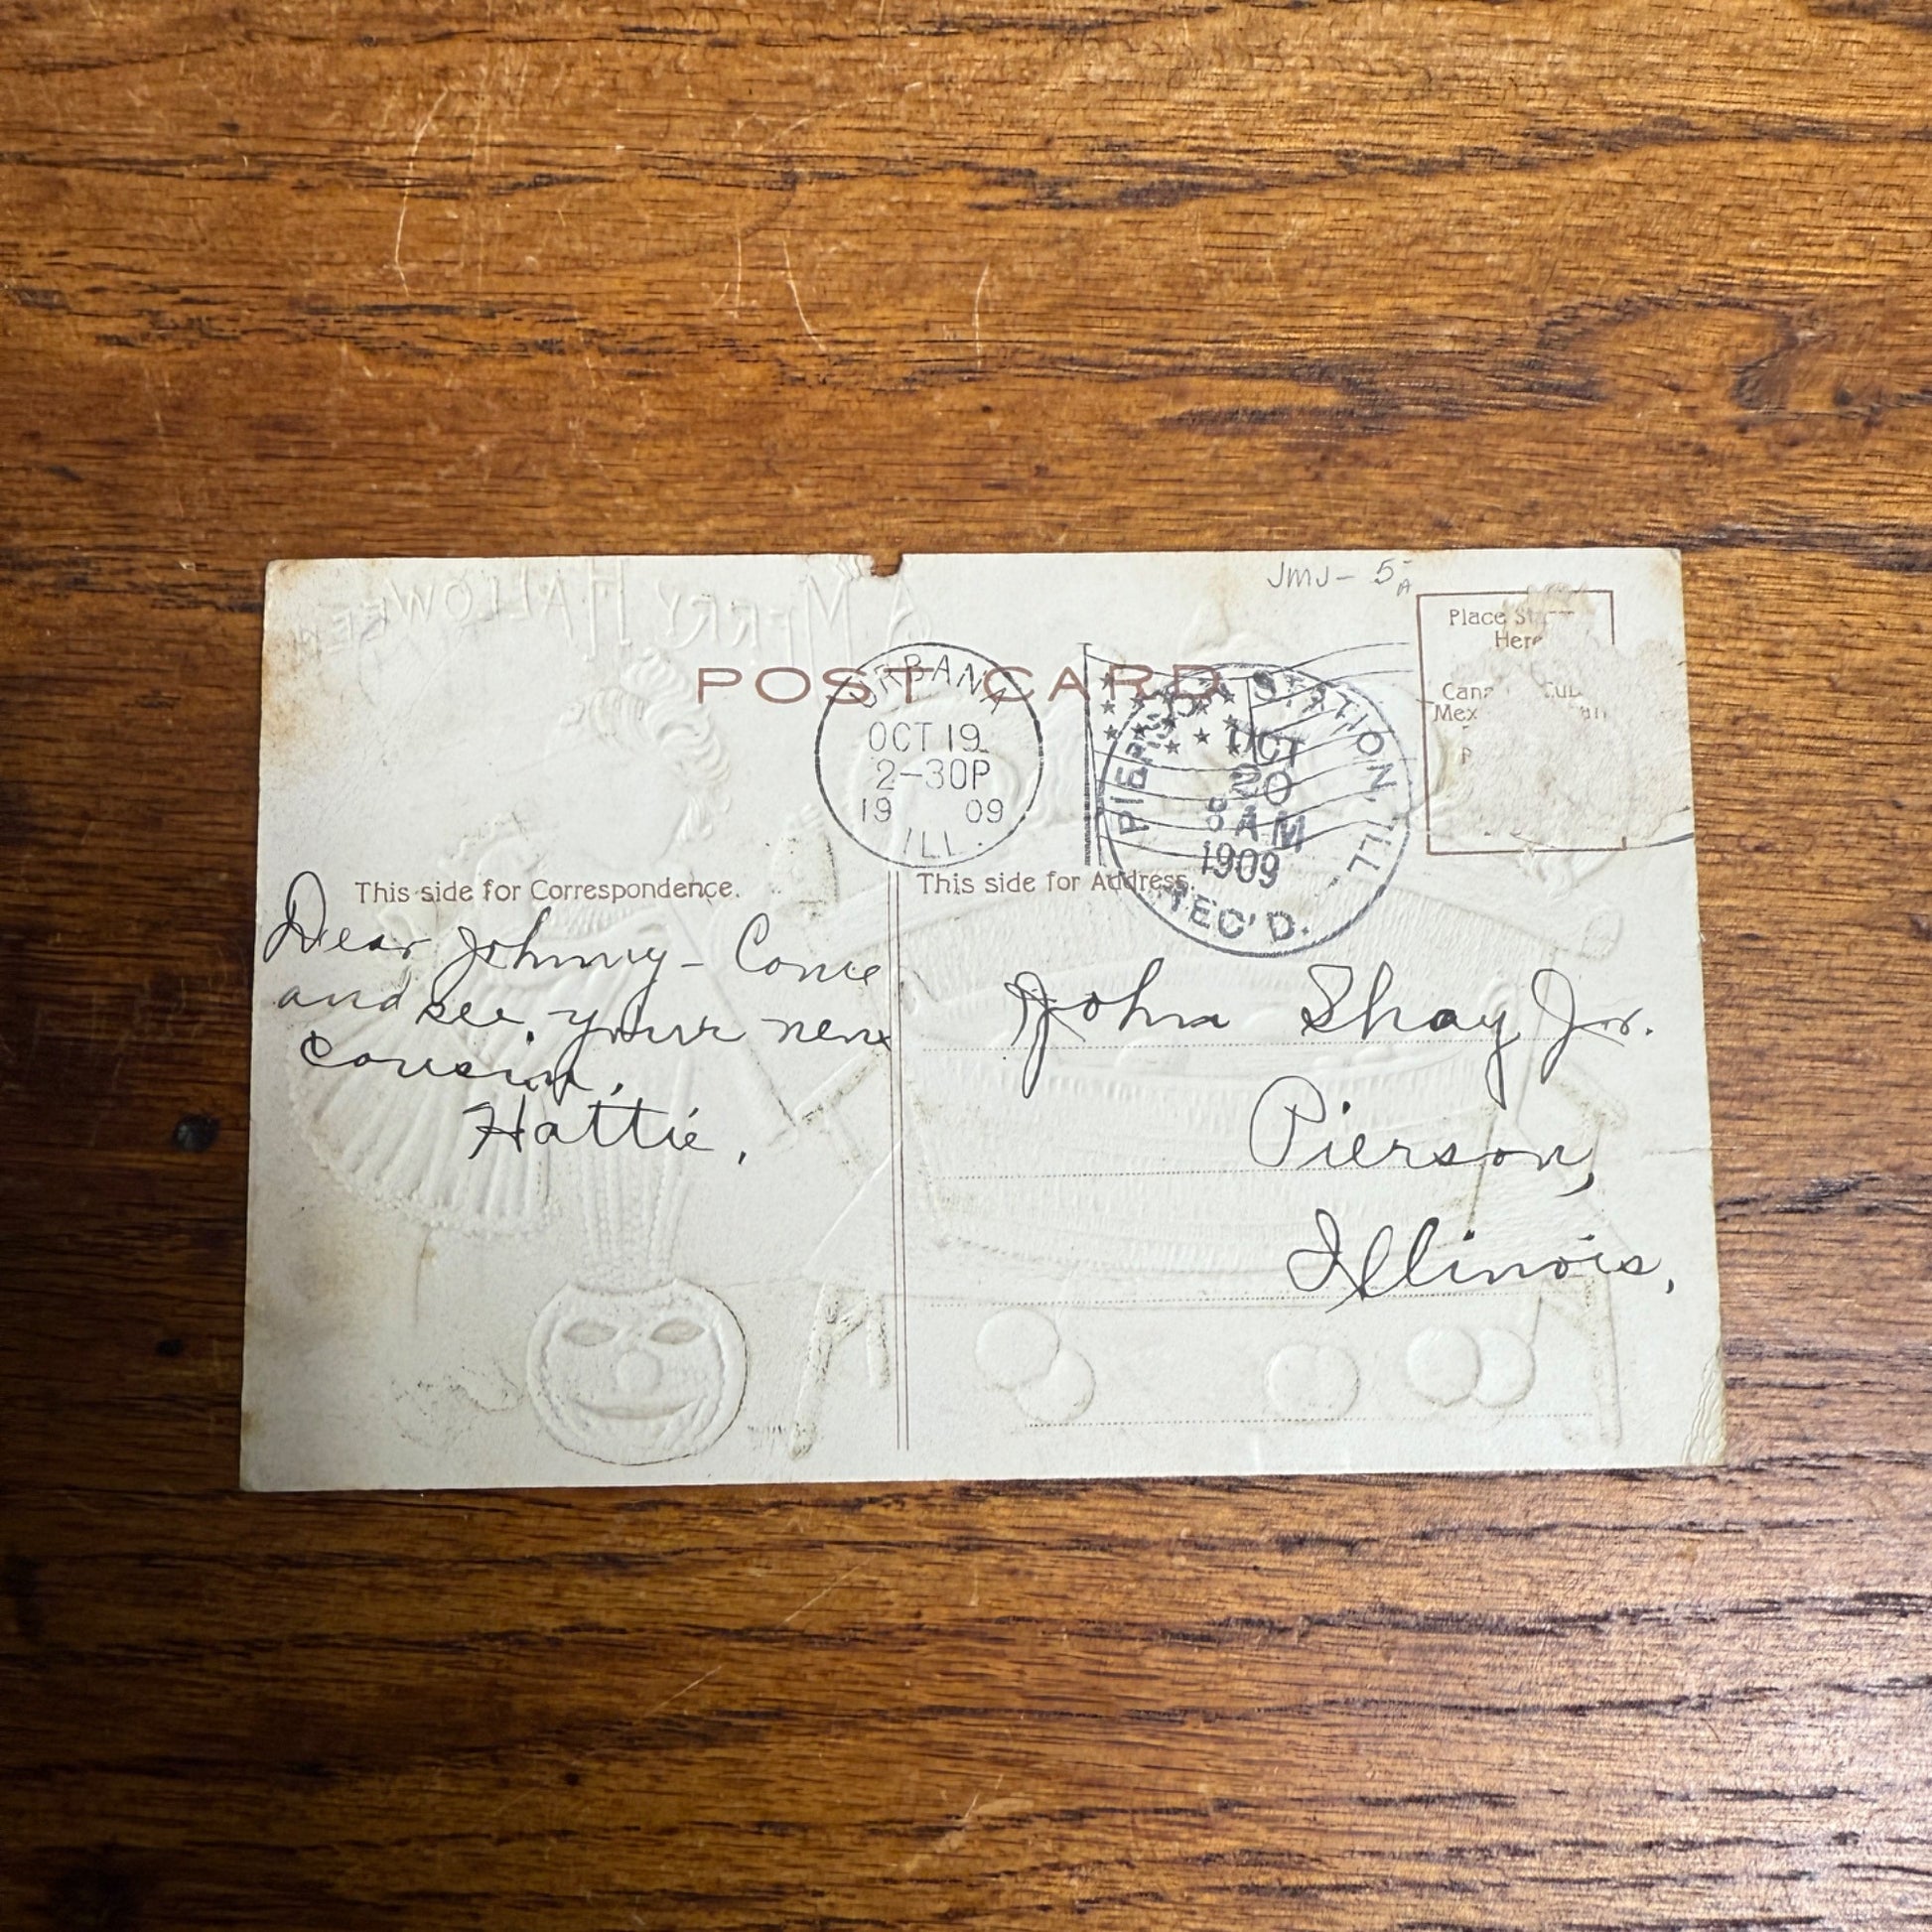 A MERRY HALLOWEEN
JMJ- 5 A
Place
Here
POST CARD
URBANA
OCT 19
2-30P
19 09
ILL.
PIERSON STATION, ILL
OCT
20
8 AM
1909
REC'D.
This side for Correspondence.
Dear Johnny - Come
and see your new
cousin,
Hattie,
This side for Address.
John Shay Jr.
Pierson,
Illinois,